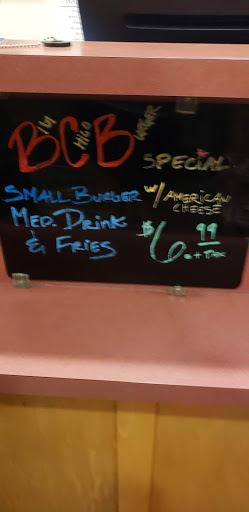 BCB SPECIAL
SMALL BURGER w/ AMERICAN CHEESE
MED. DRINK
& FRIES $6.99 + TAX